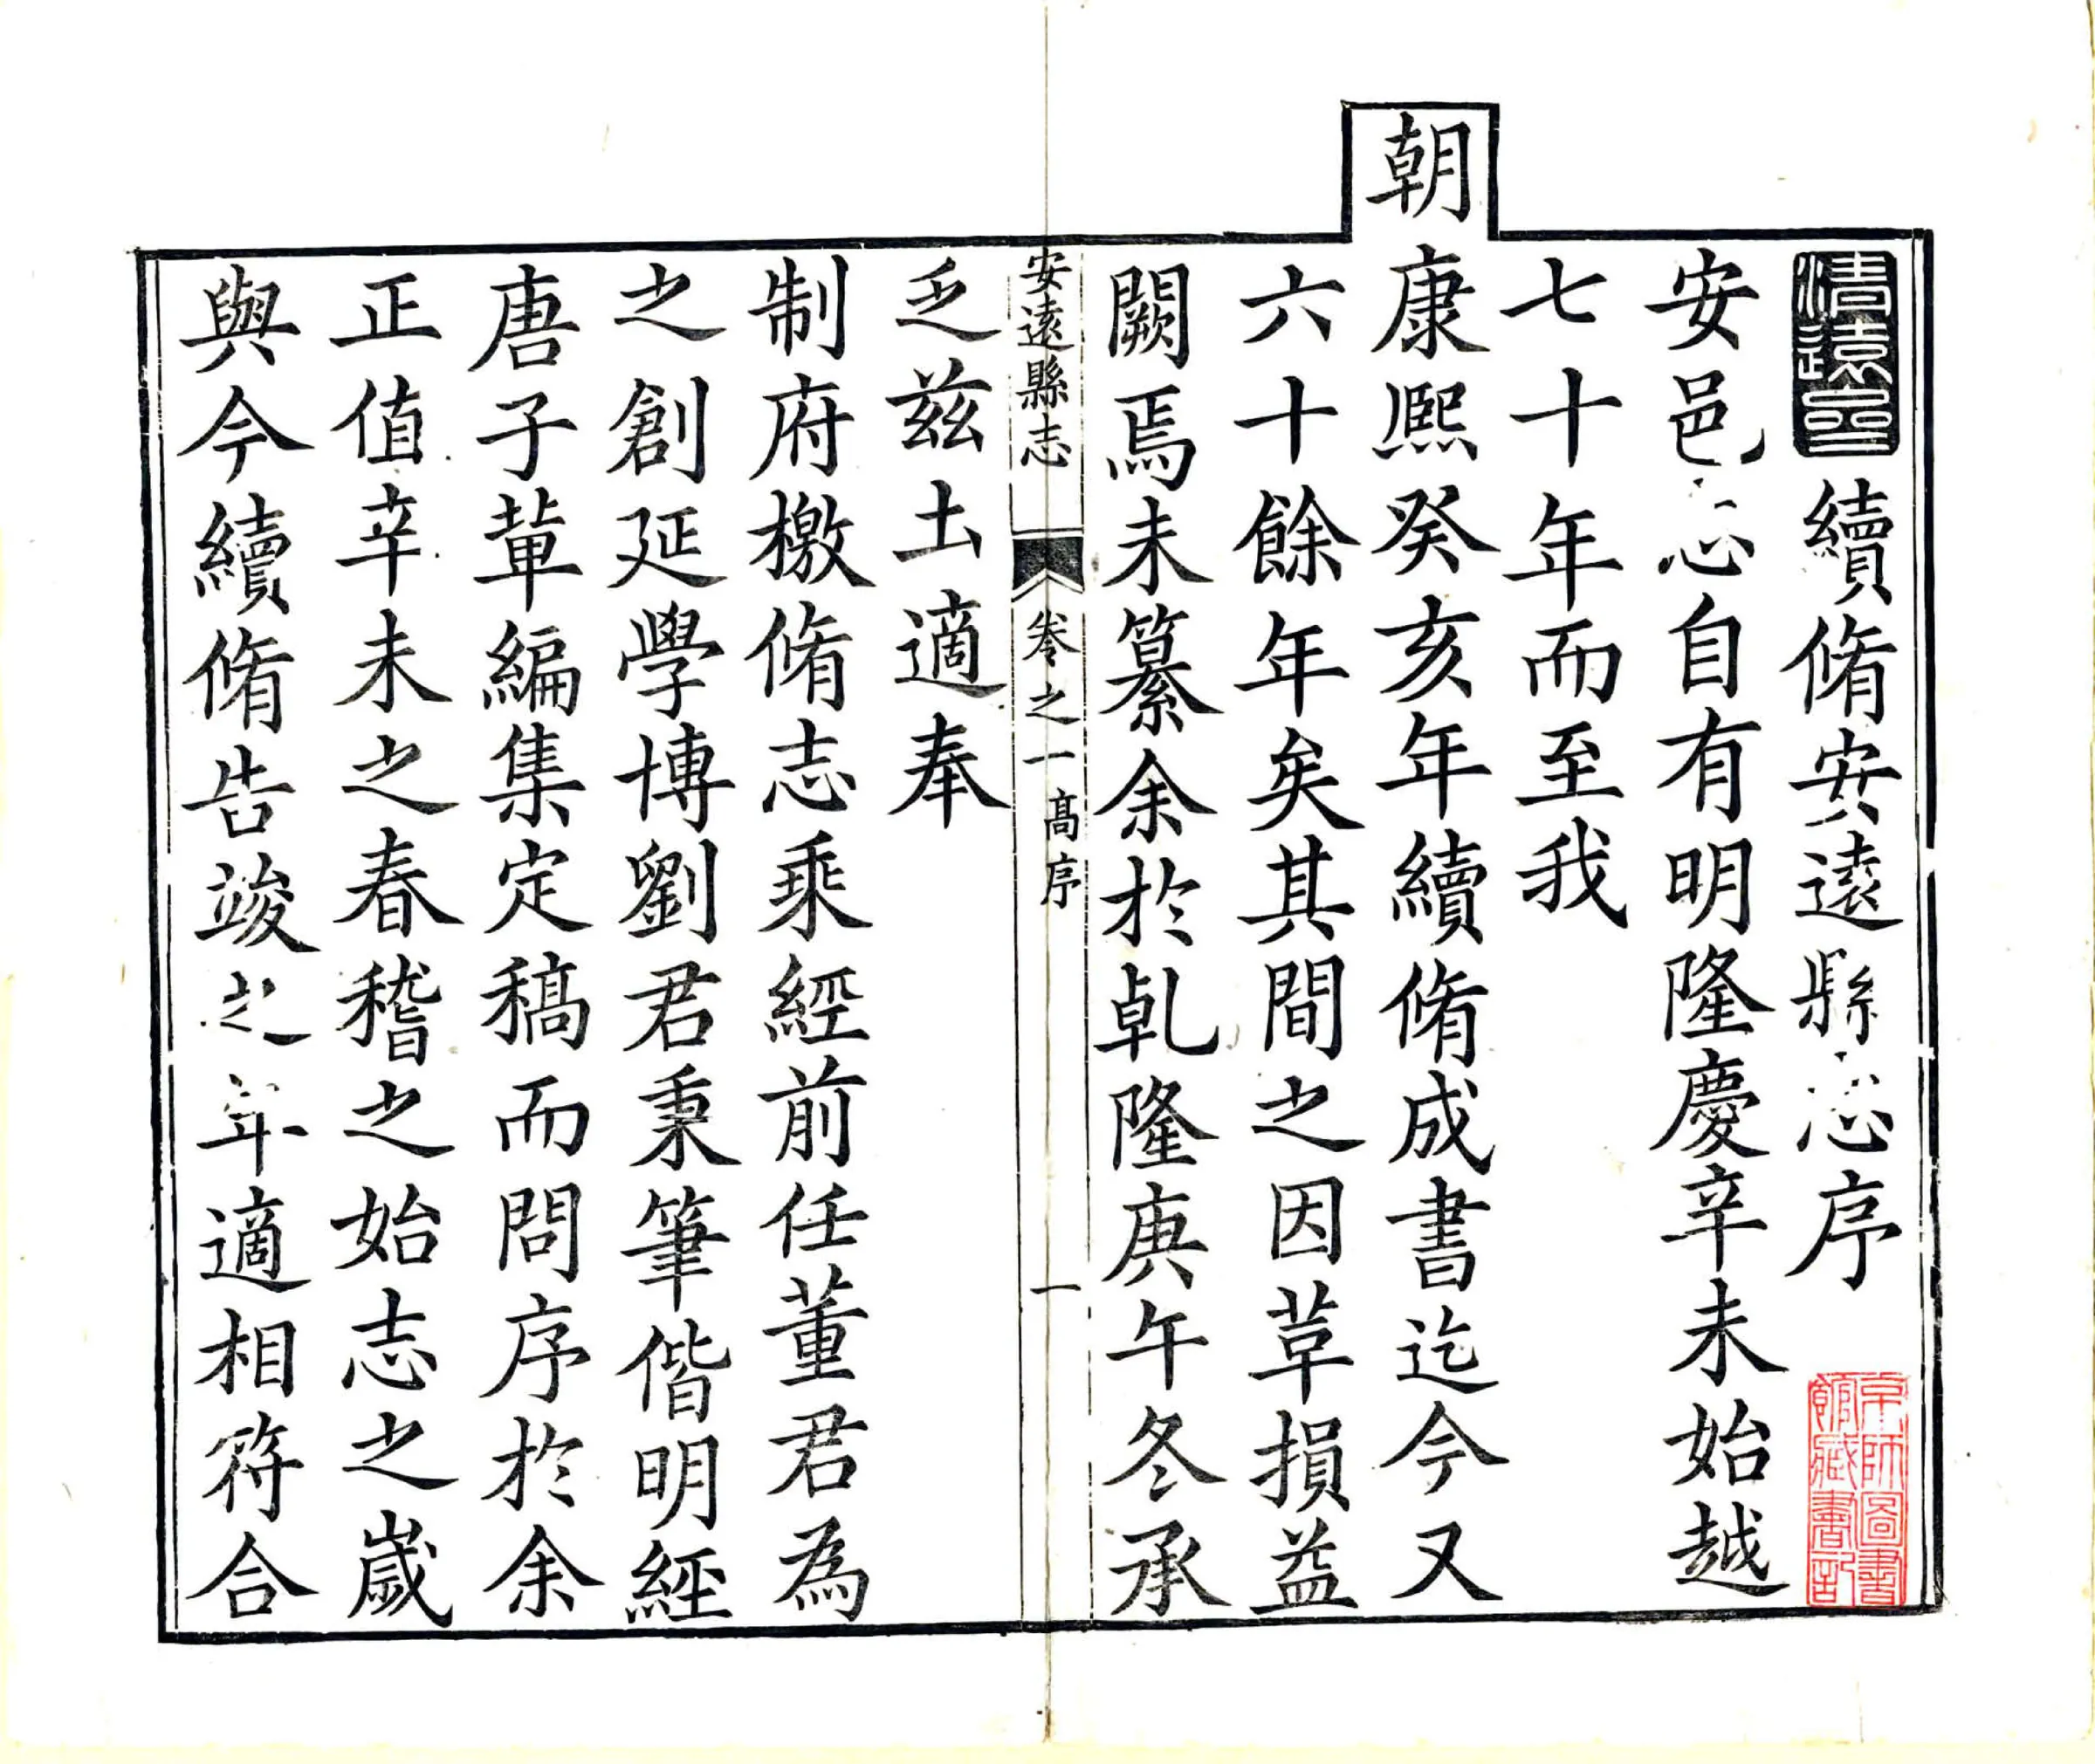 續脩安遠縣志序
安邑志自有明隆慶辛未始越
七十年而至我
朝康熙癸亥年續脩成書迄今又
六十餘年矣其間之因革損益
闕焉未纂余於乹隆庚午冬承
安遠縣志 卷之一 高序 一
乏茲土適奉
制府檄脩志乘經前任董君為
之創延學博劉君秉筆偕明經
唐子軰編集定稿而問序於余
正值辛未之春稽之始志之歲
與今續脩告竣之年適相符合
京師圖書
館藏書記